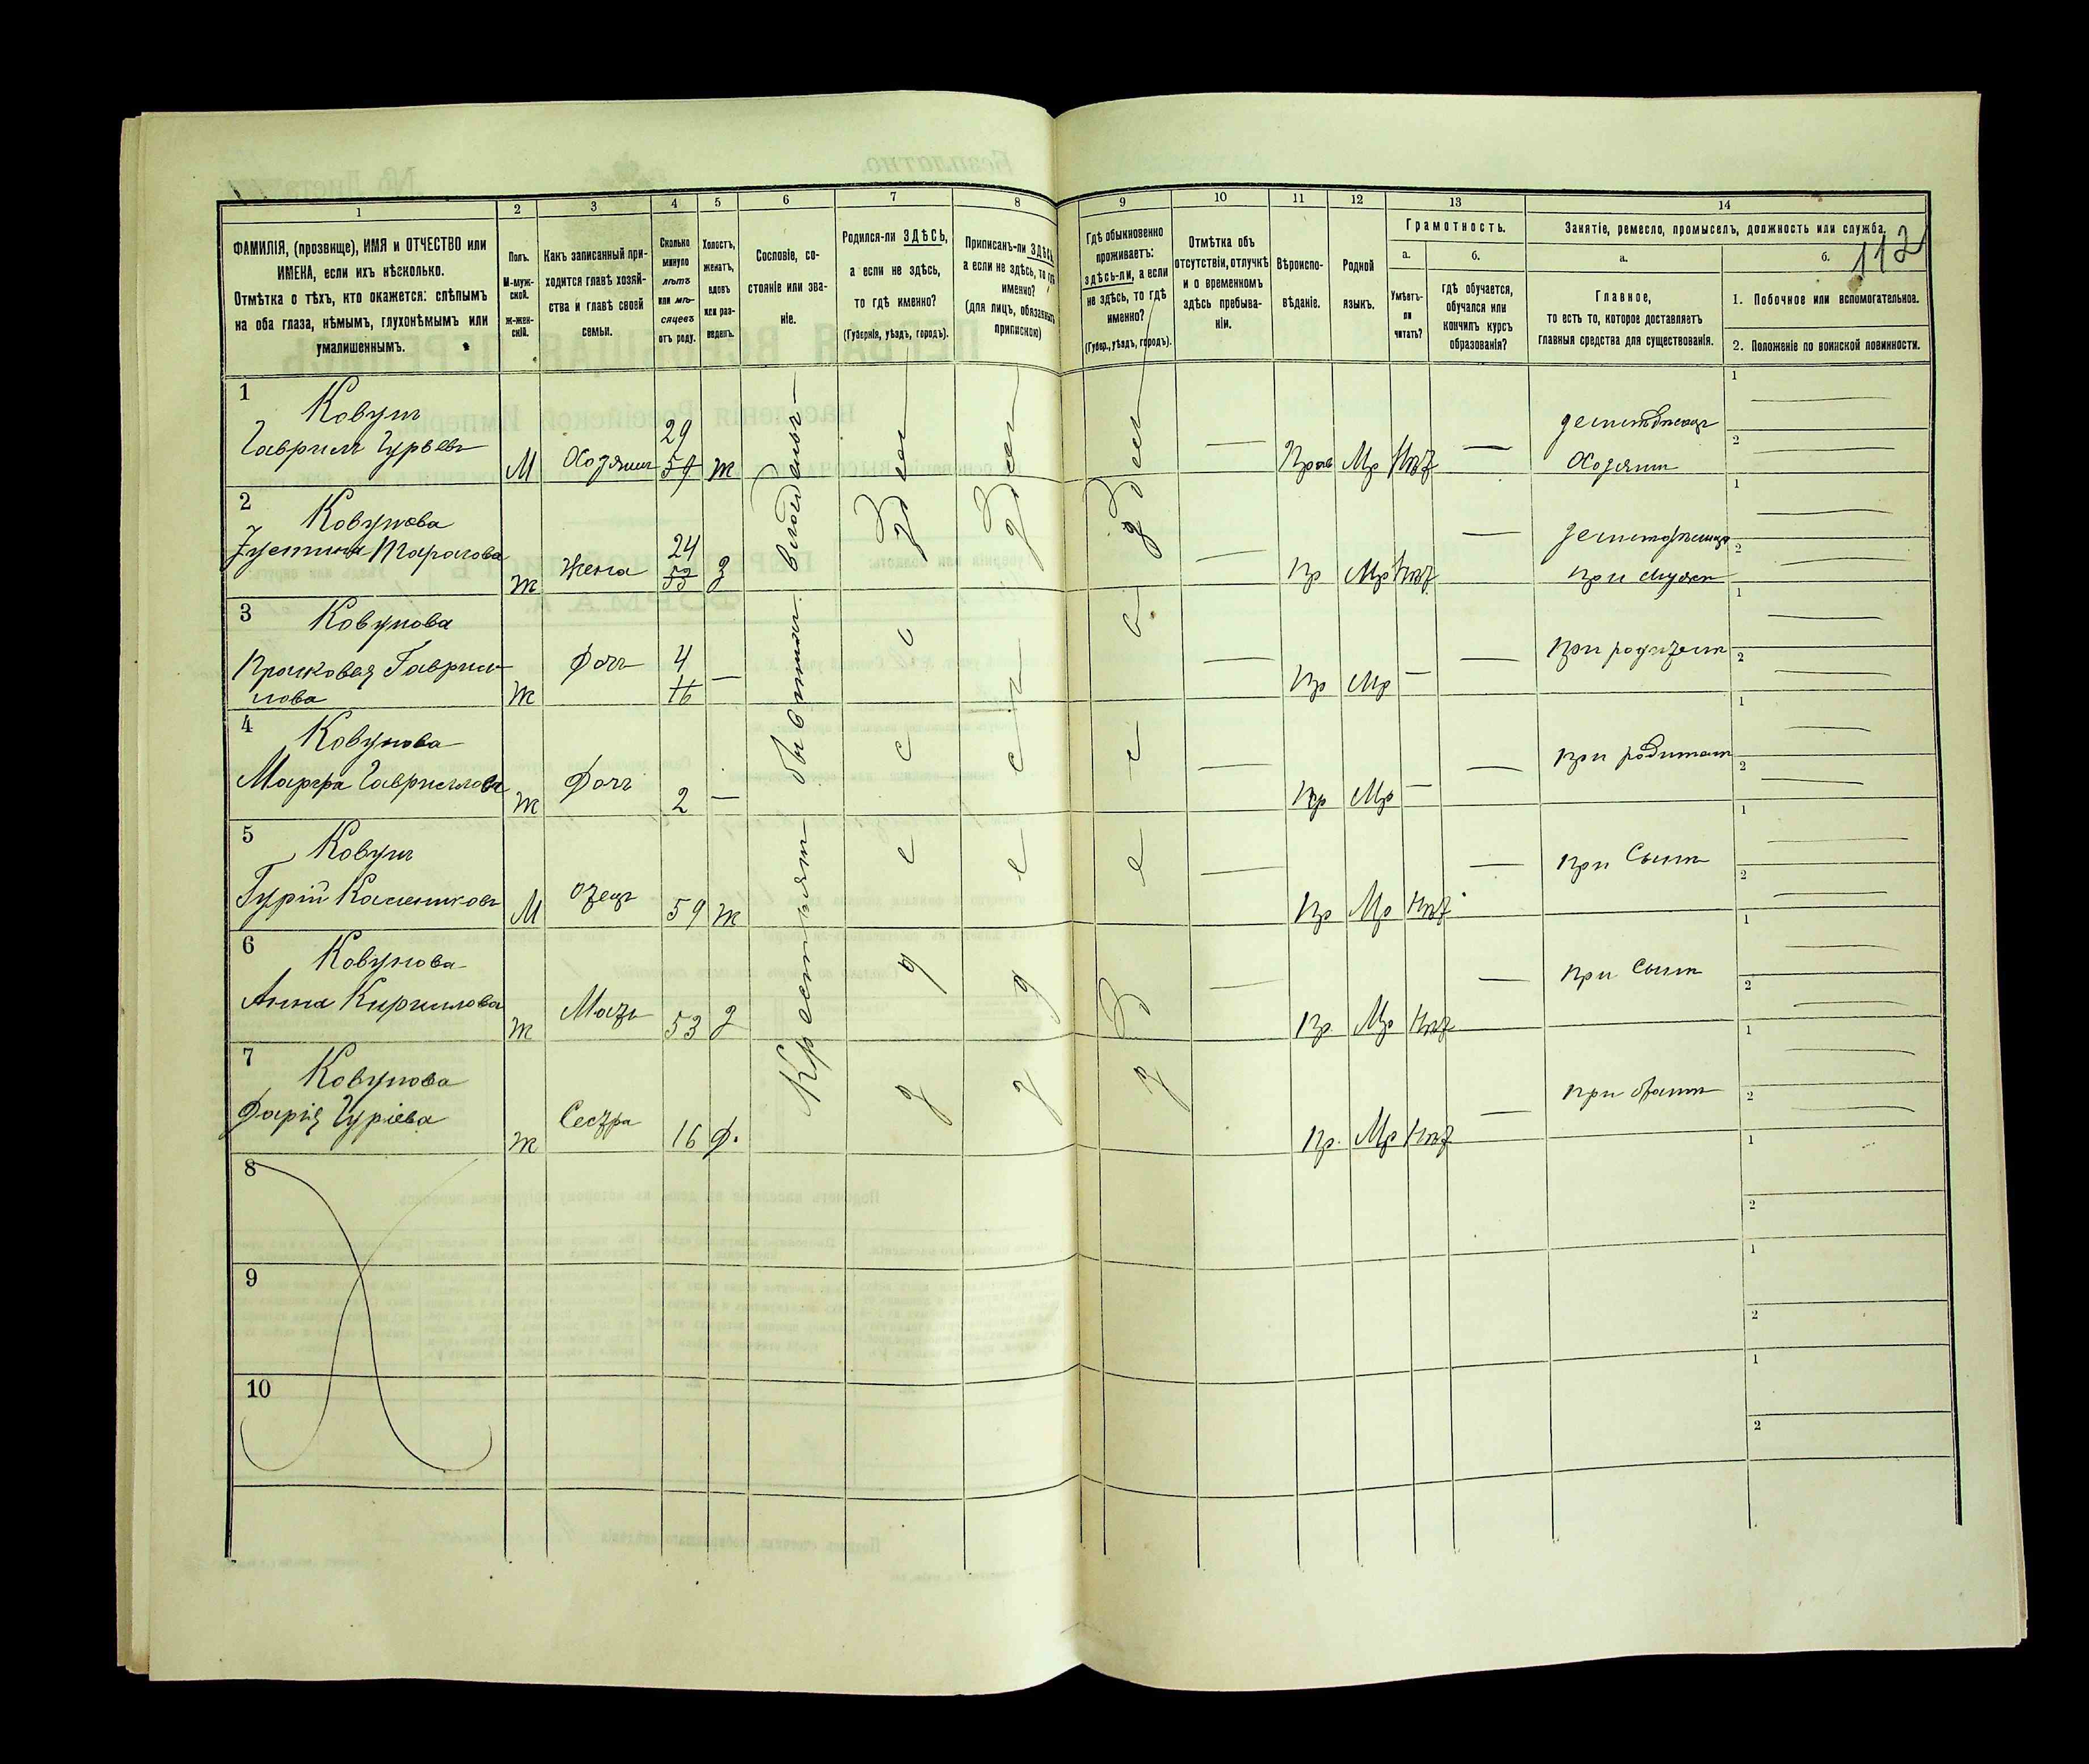 1 2 3 4 5 6 7 8 9 10 11 12 13 14
ФАМИЛІЯ, (прозвище), ИМЯ и ОТЧЕСТВО или
ИМЕНА, если ихъ нѣсколько.
Отмѣтка о тѣхъ, кто окажется: слѣпымъ
на оба глаза, нѣмымъ, глухонѣмымъ или
умалишеннымъ.
Полъ.
М-муж-
ской.
ж-жен-
скій.
Какъ записанный при-
ходится главѣ хозяй-
ства и главѣ своей
семьи.
Сколько
минуло
лѣтъ
или мѣ-
сяцевъ
отъ роду.
Холостъ,
женатъ,
вдовъ
или раз-
веденъ.
Сословіе, со-
стояніе или зва-
ніе.
Родился-ли ЗДѢСЬ,
а если не здѣсь,
то гдѣ именно?
(Губернія, уѣздъ, городъ).
Приписанъ-ли ЗДѢСЬ,
а если не здѣсь, то гдѣ
именно?
(для лицъ, обязанныхъ
припискою)
Гдѣ обыкновенно
проживаетъ:
здѣсь-ли, а если
не здѣсь, то гдѣ
именно?
(Губер., уѣздъ, городъ).
Отмѣтка объ
отсутствіи, отлучкѣ
и о временномъ
здѣсь пребыва-
ніи.
Вѣроиспо-
вѣданіе.
Родной
языкъ.
Грамотность.
а.
Умѣетъ-
ли
читать?
б.
гдѣ обучается,
обучался или
кончилъ курсъ
образованія?
Занятіе, ремесло, промыселъ, должность или служба.
112
а.
Главное,
то есть то, которое доставляетъ
главныя средства для существованія.
б.
1. Побочное или вспомогательное.
2. Положеніе по воинской повинности.
Крестьянинъ бывшихъ
Здѣсь
Здѣсь
Здѣсь
1 Ковунъ
Гаврилъ Гурьевъ М Хозяинъ 29 59 ж Прав Мр Нѣт
земледѣлецъ
Хозяинъ
1
2
2 Ковунова
Устинья Тарасова ж Жена 24 53 з Пр Мр Нѣт
при мужѣ
1
2
3 Ковунова
Прасковья Гаври-
лова ж Дочь 4 16 — Пр Мр —
при родител
1
2
4 Ковунова
Марѳа Гаврилова ж Дочь 2 — Пр Мр —
при родител
1
2
5 Ковунъ
Гурій М отец 59 ж Пр Мр Нѣт
при Сынѣ
1
2
6 Ковунова
Анна Кирилова ж Мать 53 з Пр Мр Нѣт
при Сынѣ
1
2
7 Ковунова
Дарія Гуріева ж Сестра 16 д. Пр. Мр Нѣт
при братѣ
1
2
8
1
2
9
1
2
10
1
2